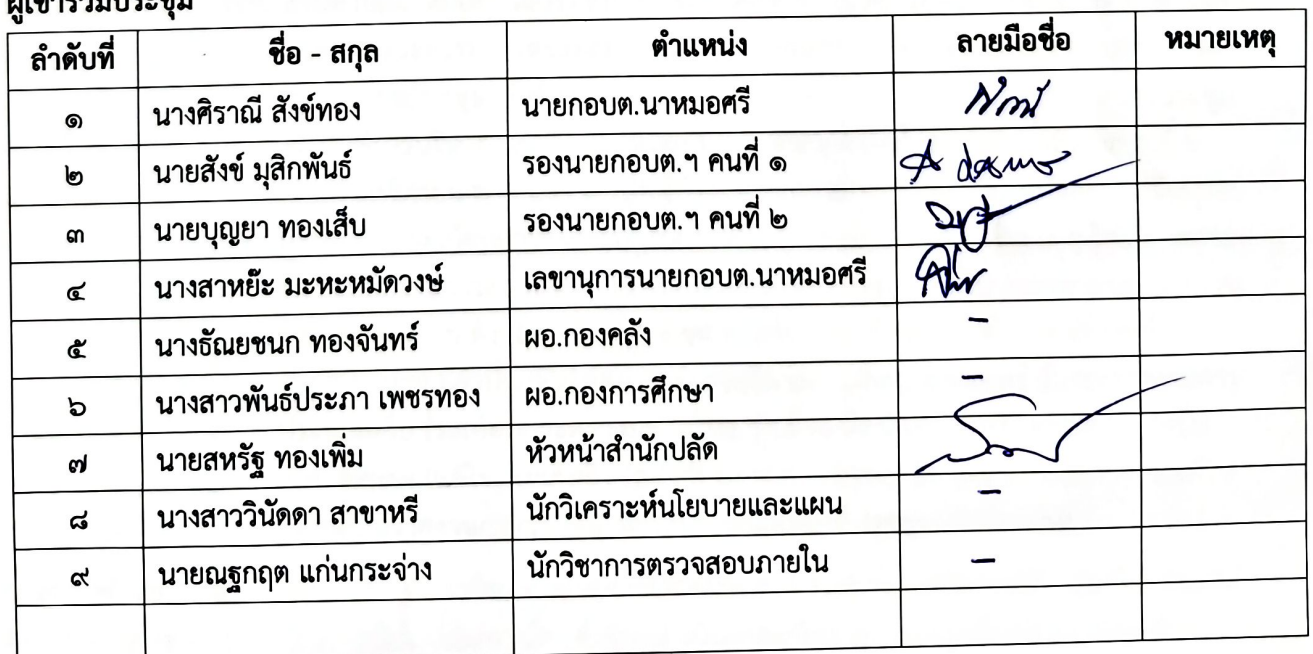 ผู้เข้าร่วมประชุม
ลำดับที่ ชื่อ - สกุล ตำแหน่ง ลายมือชื่อ หมายเหตุ
๑ นางศิราณี สังข์ทอง นายกอบต.นาหมอศรี
๒ นายสังข์ มุสิกพันธ์ รองนายกอบต.ฯ คนที่ ๑
๓ นายบุญยา ทองเส็บ รองนายกอบต.ฯ คนที่ ๒
๔ นางสาหย๊ะ มะหะหมัดวงษ์ เลขานุการนายกอบต.นาหมอศรี
๕ นางธัณยชนก ทองจันทร์ ผอ.กองคลัง -
๖ นางสาวพันธ์ประภา เพชรทอง ผอ.กองการศึกษา -
๗ นายสหรัฐ ทองเพิ่ม หัวหน้าสำนักปลัด
๘ นางสาววินัดดา สาขาหรี นักวิเคราะห์นโยบายและแผน -
๙ นายณฐกฤต แก่นกระจ่าง นักวิชาการตรวจสอบภายใน -